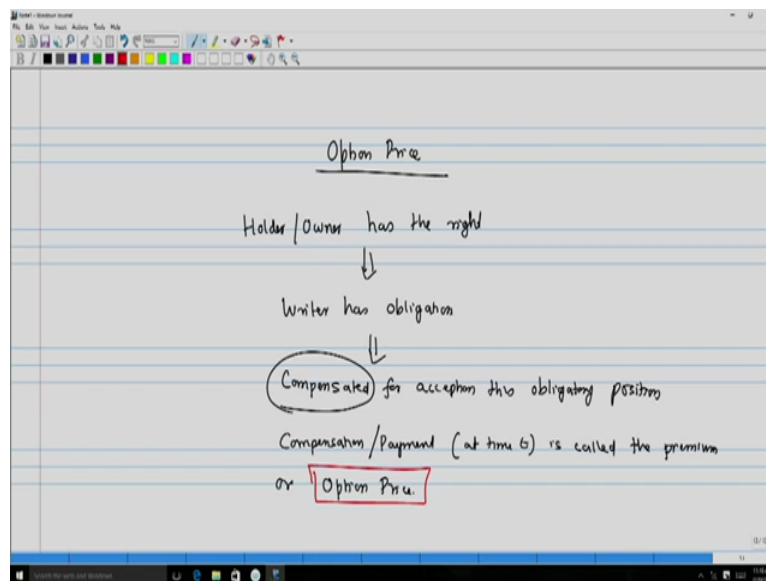 Note1 - Windows Journal
File Edit View Insert Actions Tools Help
B I
Option Price
Holder/Owner has the right
⇓
Writer has obligation
⇓
Compensated for acception this obligatory position
Compensation/Payment (at time 0) is called the premium
or Option Price.
Search the web and Windows